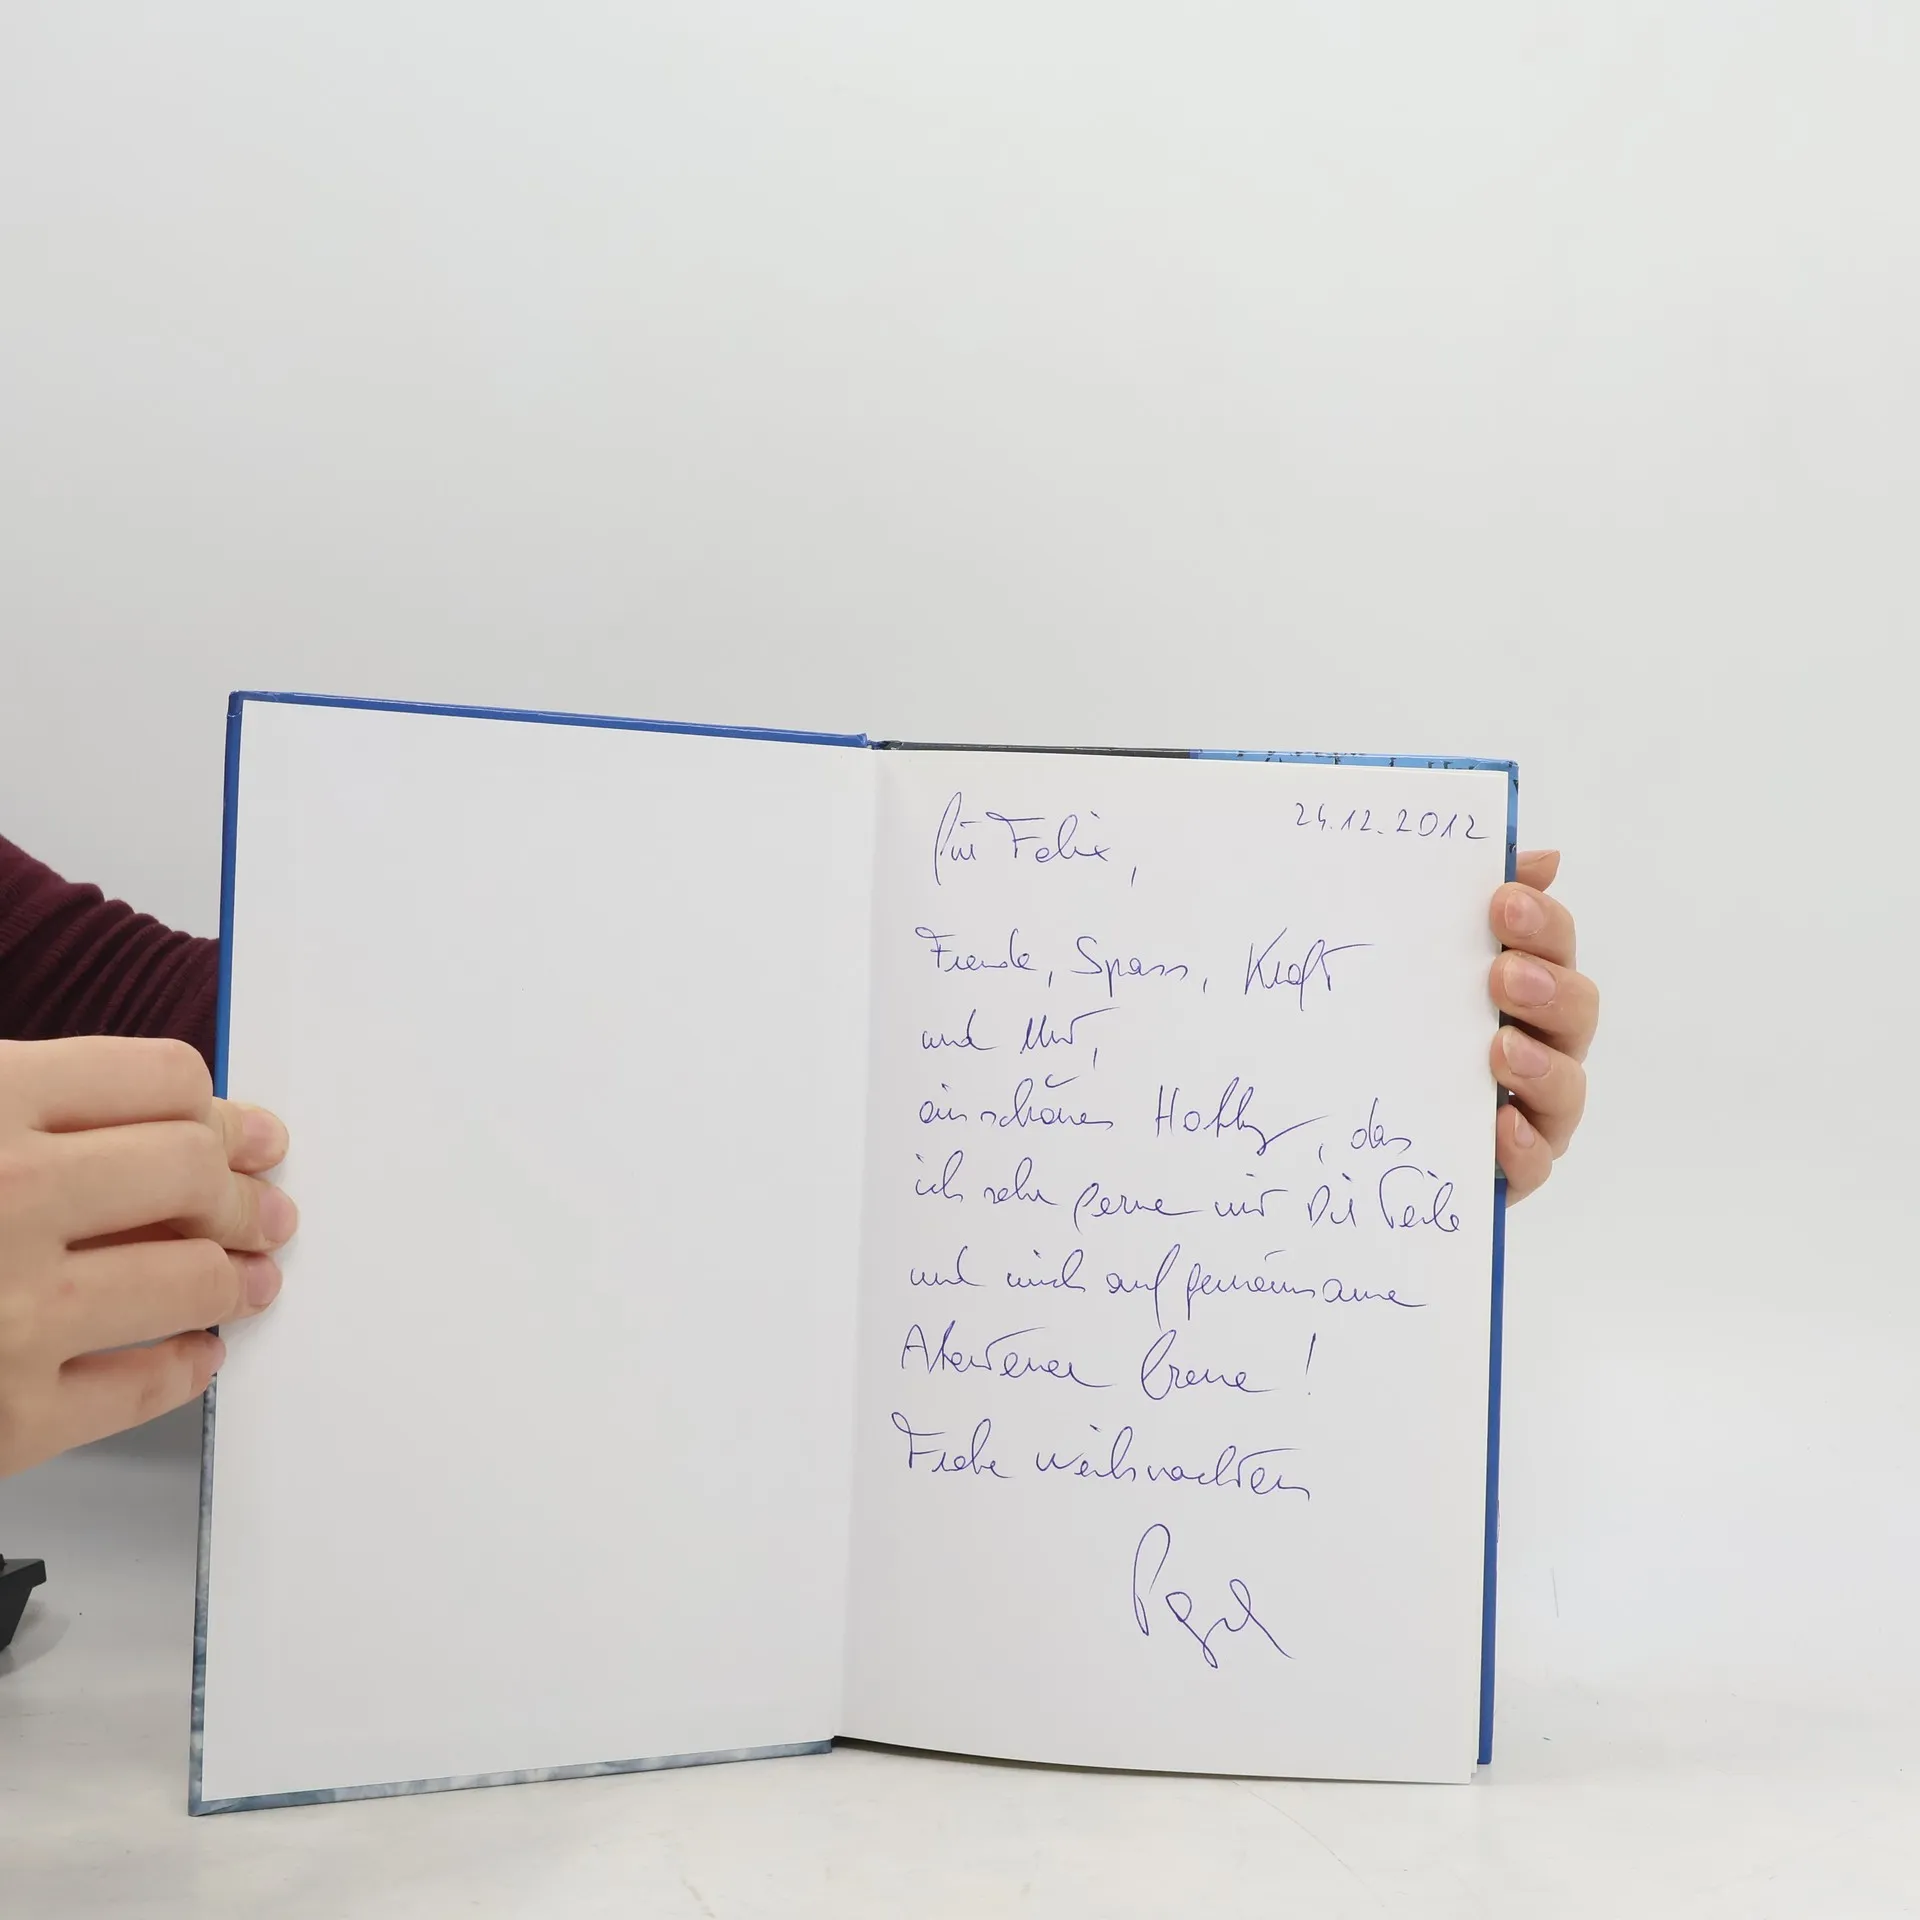 24.12.2012
Für Felix,
Freude, Spass, Kraft
und Mut,
ein schönes Hobby, das
ich sehr gerne mit Dir Teile
und mich auf gemeinsame
Abenteuer freue!
Frohe Weihnachten